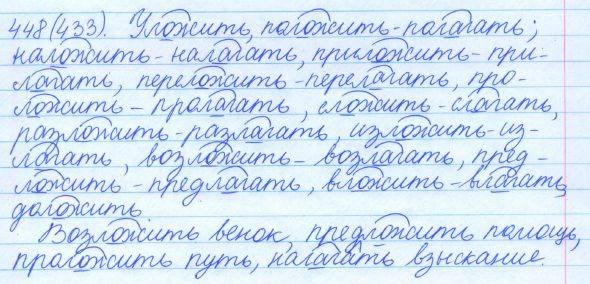 448(433). Уложить, положить-полагать;
наложить-налагать, приложить-при-
лагать, переложить-перелагать, про-
ложить-пролагать, сложить-слагать,
разложить-разлагать, изложить-из-
лагать, возложить-возлагать, пред-
ложить-предлагать, вложить-влагать,
доложить.
Возложить венок, предложить помощь,
проложить путь, налагать взыскание.